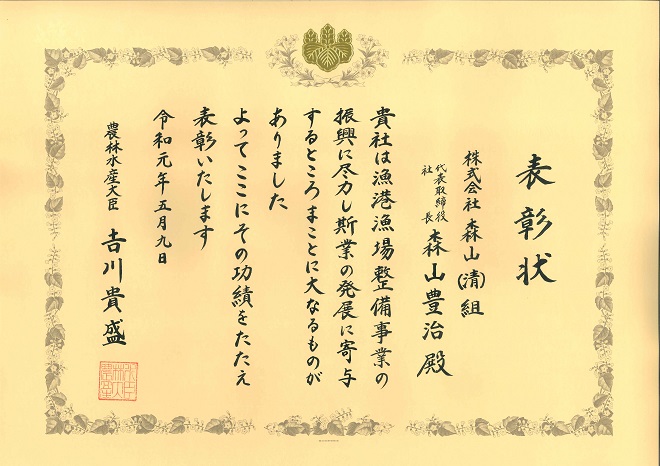 表彰状
株式会社 森山(清)組
代表取締役
社長
森山豊治殿
貴社は漁港漁場整備事業の
振興に尽力し斯業の発展に寄与
するところまことに大なるものが
ありました
よってここにその功績をたたえ
表彰いたします
令和元年五月九日
農林水産大臣 吉川貴盛